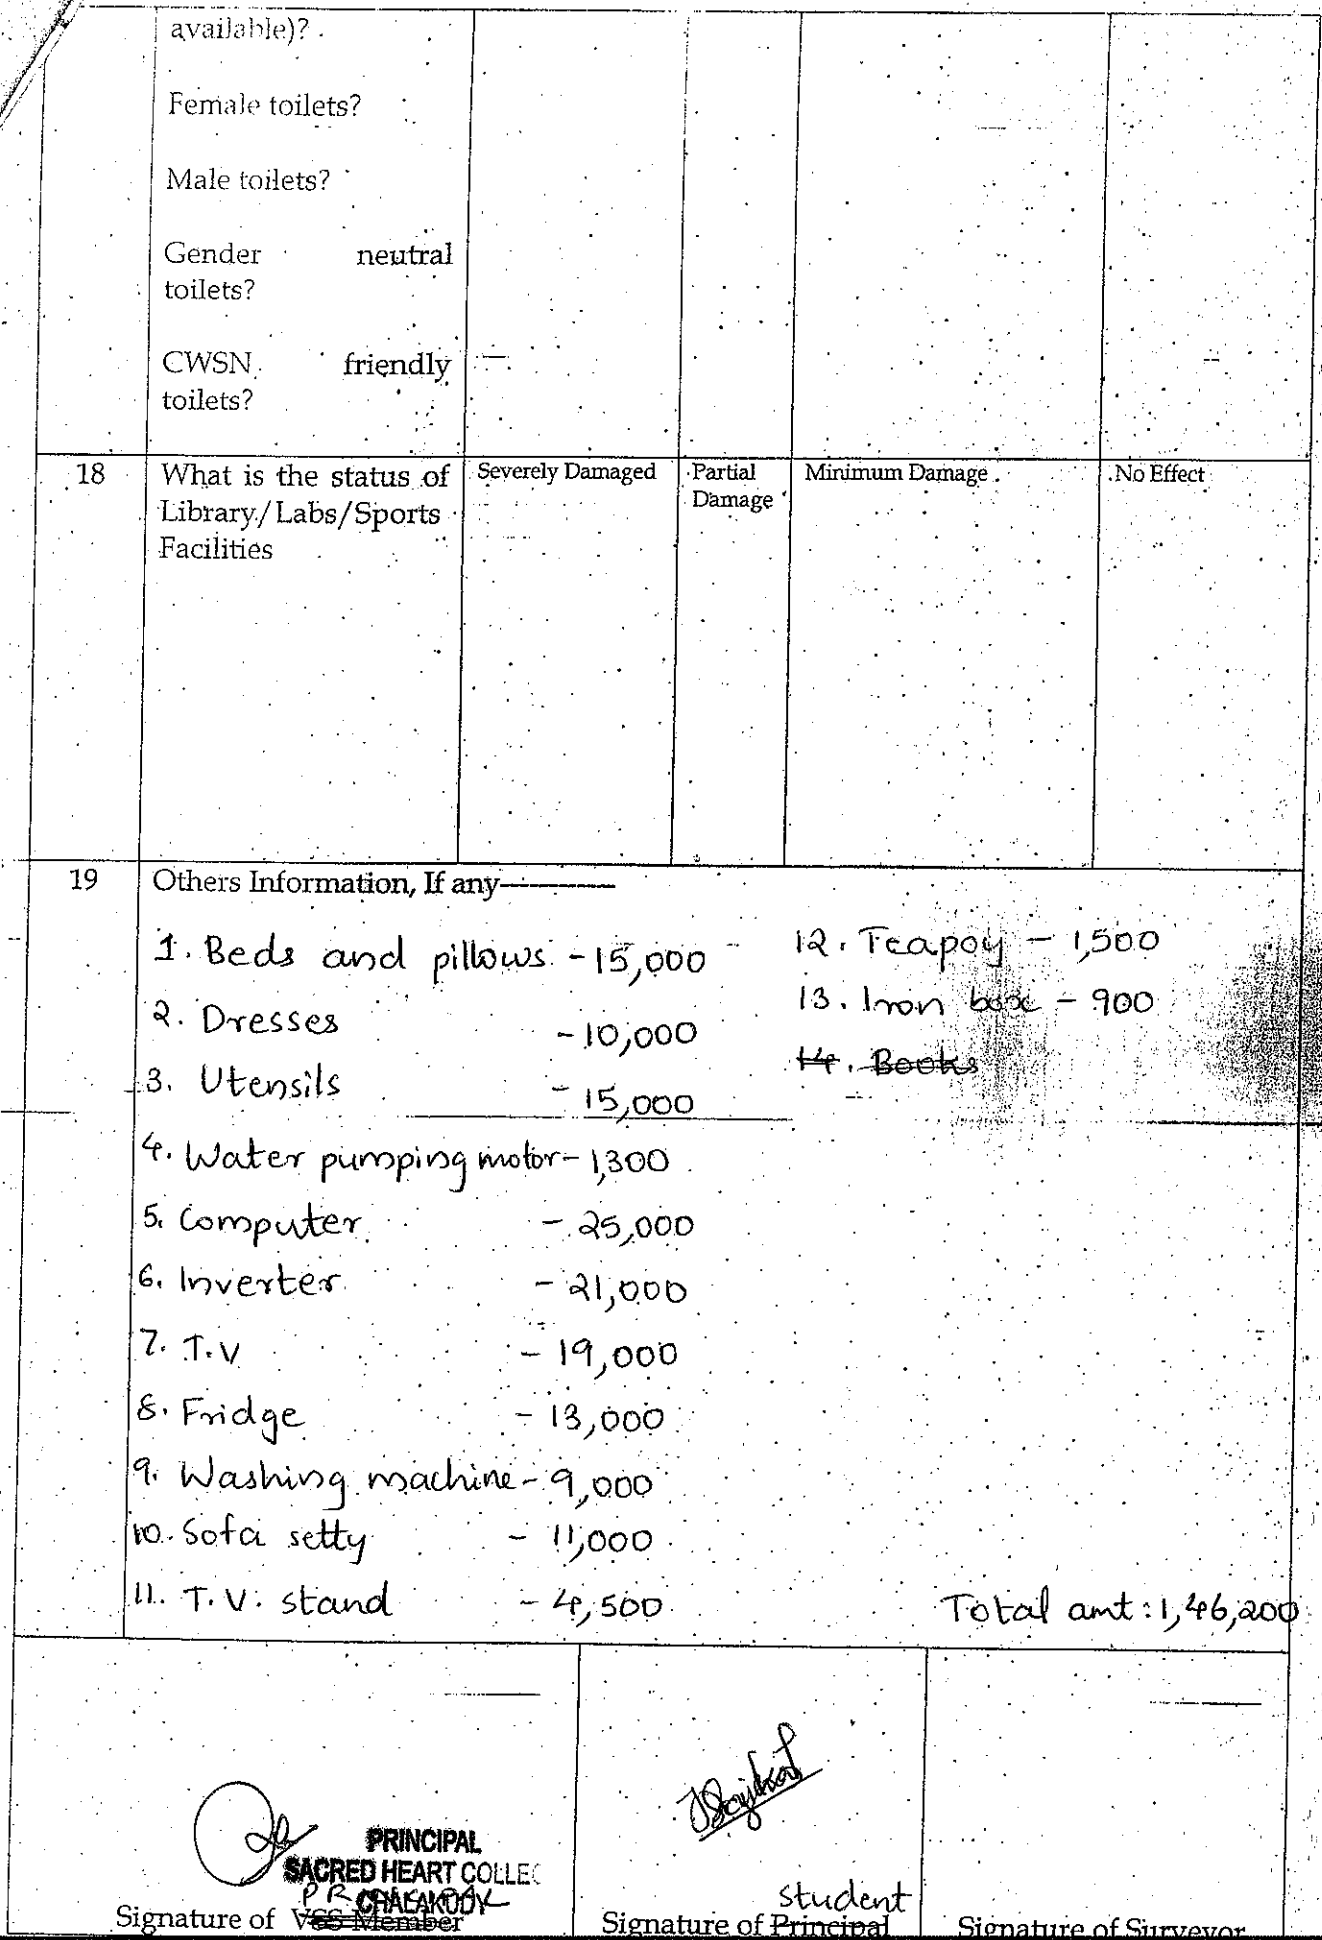 available)?
Female toilets?
Male toilets?
Gender neutral
toilets?
CWSN friendly
toilets?
18 What is the status of Severely Damaged Partial Minimum Damage No Effect
Library/Labs/Sports Damage
Facilities
19 Others Information, If any
1. Beds and pillows - 15,000
2. Dresses - 10,000
3. Utensils - 15,000
4. Water pumping motor - 1,300
5. Computer - 25,000
6. Inverter - 21,000
7. T.V - 19,000
8. Fridge - 13,000
9. Washing machine - 9,000
10. Sofa setty - 11,000
11. T.V. stand - 4,500
12. Teapoy - 1,500
13. Iron box - 900
14. Books
Total amt: 1,46,200
PRINCIPAL
SACRED HEART COLLEG
CHALAKUDY
Signature of VSS Member
student
Signature of Principal
Signature of Surveyor